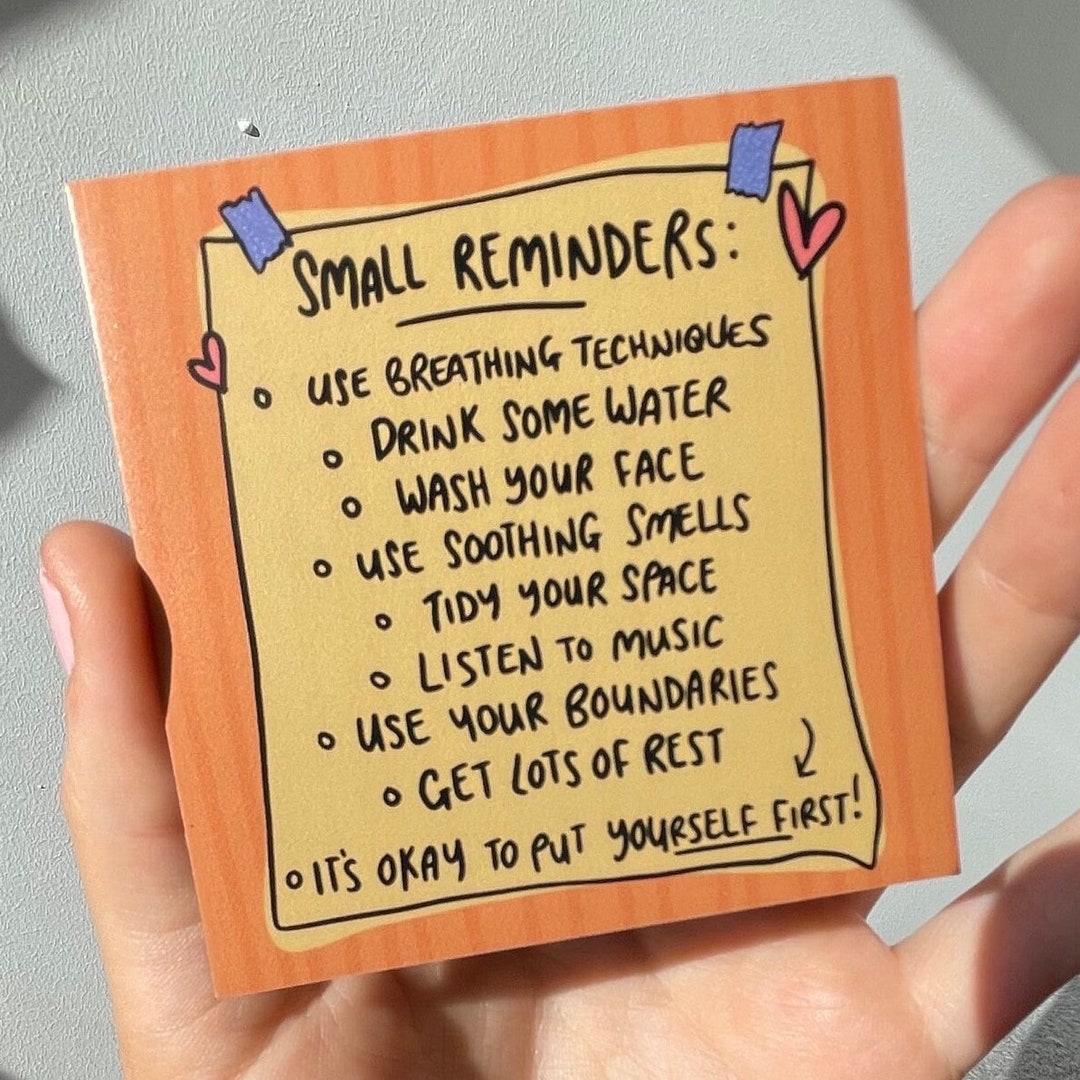 SMALL REMINDERS:
◦ USE BREATHING TECHNIQUES
◦ DRINK SOME WATER
◦ WASH YOUR FACE
◦ USE SOOTHING SMELLS
◦ TIDY YOUR SPACE
◦ LISTEN TO MUSIC
◦ USE YOUR BOUNDARIES
◦ GET LOTS OF REST
◦ IT'S OKAY TO PUT YOURSELF FIRST!